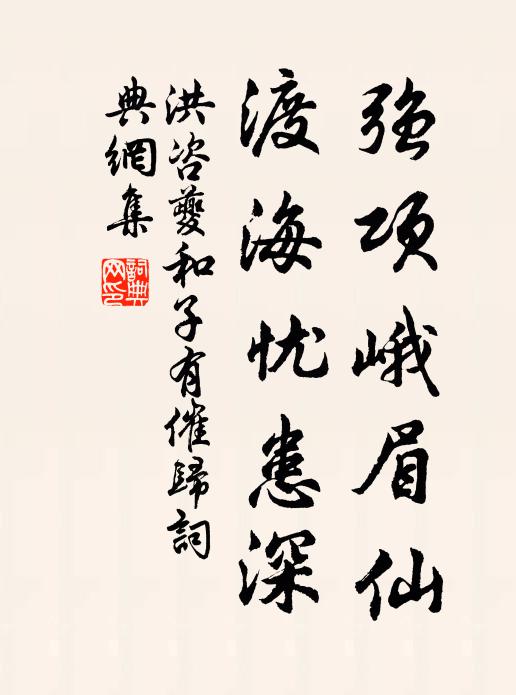 强项峨眉仙
渡海忧患深
洪咨夔和子有催歸詞
典網集
詞典网印